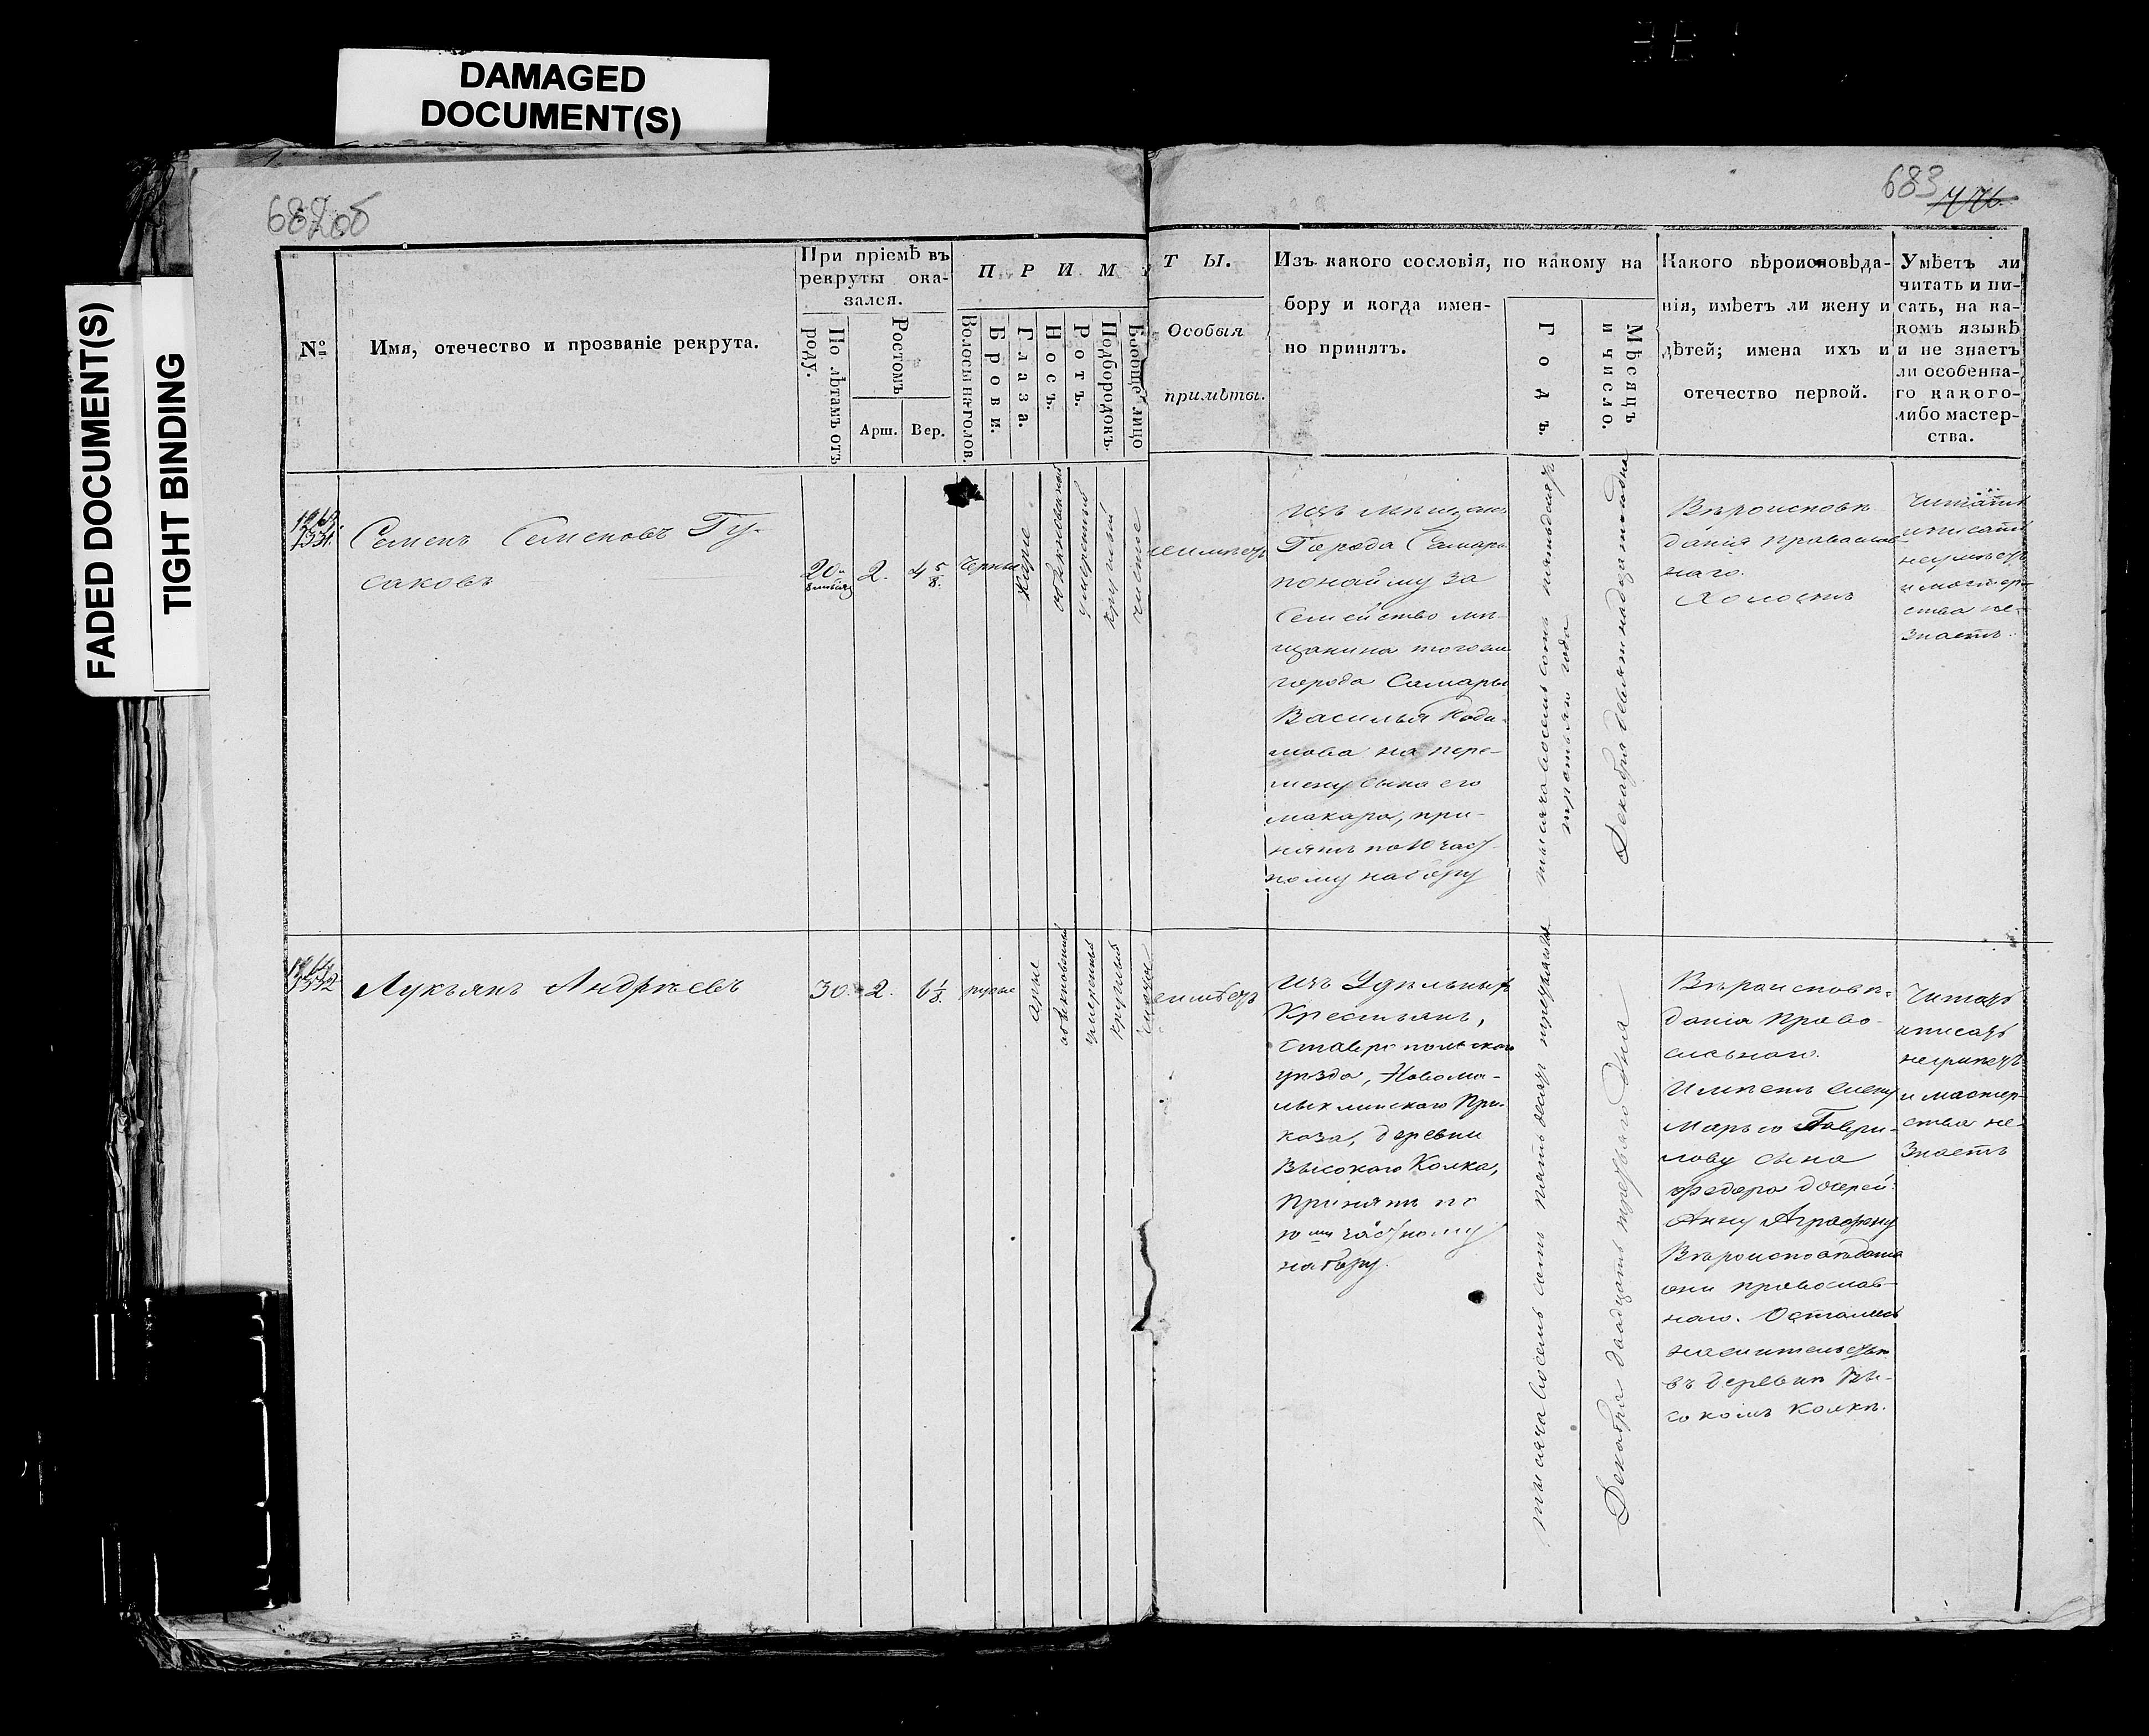 DAMAGED
DOCUMENT(S)
FADED DOCUMENT(S)
TIGHT BINDING
682об
683
№
Имя, отечество и прозваніе рекрута.
При пріемѣ въ
рекруты ока-
зался.
По лѣтамъ отъ
роду.
Ростомъ
Арш.
Вер.
П Р И М
Волосы на голов.
Брови.
Глаза.
Носъ.
Ротъ.
Подбородокъ.
Вообще лицо
Т Ы.
Особыя
примѣты.
Изъ какого сословія, по какому на
бору и когда имен-
но принятъ.
Годъ.
Мѣсяцъ
и число.
Какого вѣроисповѣда-
нія, имѣетъ ли жену и
дѣтей; имена ихъ и
отечество первой.
Умѣетъ ли
читать и пи-
сать, на ка-
комъ языкѣ
и не знаетъ
ли особенна-
го какого-
либо мастер-
ства.
1331.
Семенъ Семеновъ Гу-
саковъ
20
2.
4 5/8.
Черные
Карие
обыкновенной
умеренный
круглый
чистое
неимеетъ
изъ мещанъ
Города Самары
по найму за
Семейство мѣ-
щанина того же
города Самары
Василья
на пере-
мену сына его
макара, при-
нятъ по 10 част-
ному набору
тысяча восемь сотъ пятьдесятъ
третьяго года
Декабря девятнадцатого дня
Вѣроисповѣ-
дания православ-
наго.
Холостъ
Читать
и писать
неумѣетъ
и мастер-
ства не-
знаетъ.
1332
Лукьянъ Андрѣевъ
30.
2.
6 1/8.
русые
серые
обыкновенный
умеренный
круглый
чистое
неимѣетъ
Изъ Удѣльныхъ
Крестьянъ,
Ставропольского
уѣзда, Новома-
лыклинского При-
каза, деревни
Высокаго Колка,
Принятъ по
10му частному
набору.
тысяча восемь сотъ пятьдесятъ третьяго
Декабря двадцать третьяго дня
Вѣроисповѣ-
дания Право-
славнаго.
Имѣетъ жену
Марью Гаври-
лову сына
Федора дочерей:
Анну Аграфену
Вѣроисповѣдания
они православ-
наго. Остались
на жительствѣ
въ деревнѣ Вы-
сокомъ Колкѣ.
Читать
и писать
неумѣетъ
и мастер-
ства не-
знаетъ